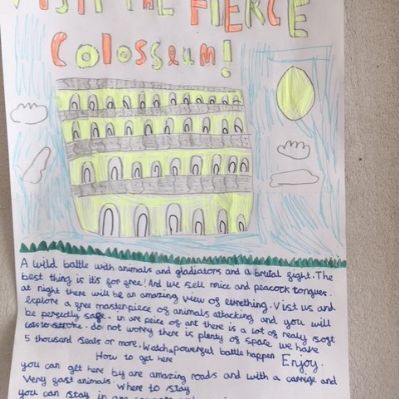 VISIT THE FIERCE
Colosseum!
A wild battle with animals and gladiators and a brutal fight. The
best thing is it's for free! And we sell mice and peacock tongues.
at night there will be an amazing view of everything. Visit us and
explore a free masterpiece of animals attacking and you will
be perfectly safe. in are peice of art there is a lot of realy soft
to stroke. do not worry there is plenty of space we have
5 thousand seats or more. Watch powerful battle happen Enjoy.
How to get here
you can get here by are amazing roads and with a carrige and
Very fast animals where to stay
you can stay in are